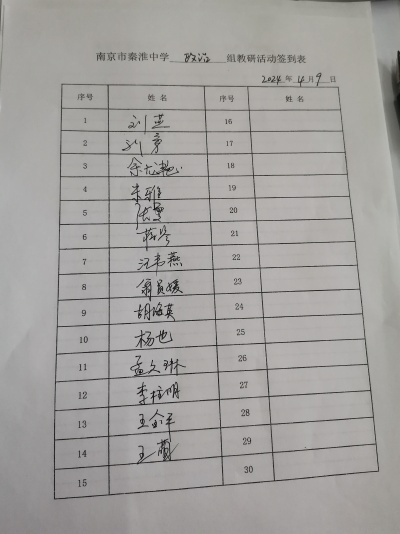 南京市秦淮中学 政治 组教研活动签到表
2024年4月9日
序号 姓名 序号 姓名
1 刘燕 16
2 刘 17
3 余 18
4 朱雅 19
5 20
6 21
7 汪韦燕 22
8 翁 媛 23
9 胡海英 24
10 杨也 25
11 孟久琳 26
12 李 明 27
13 王 28
14 王 29
15 30